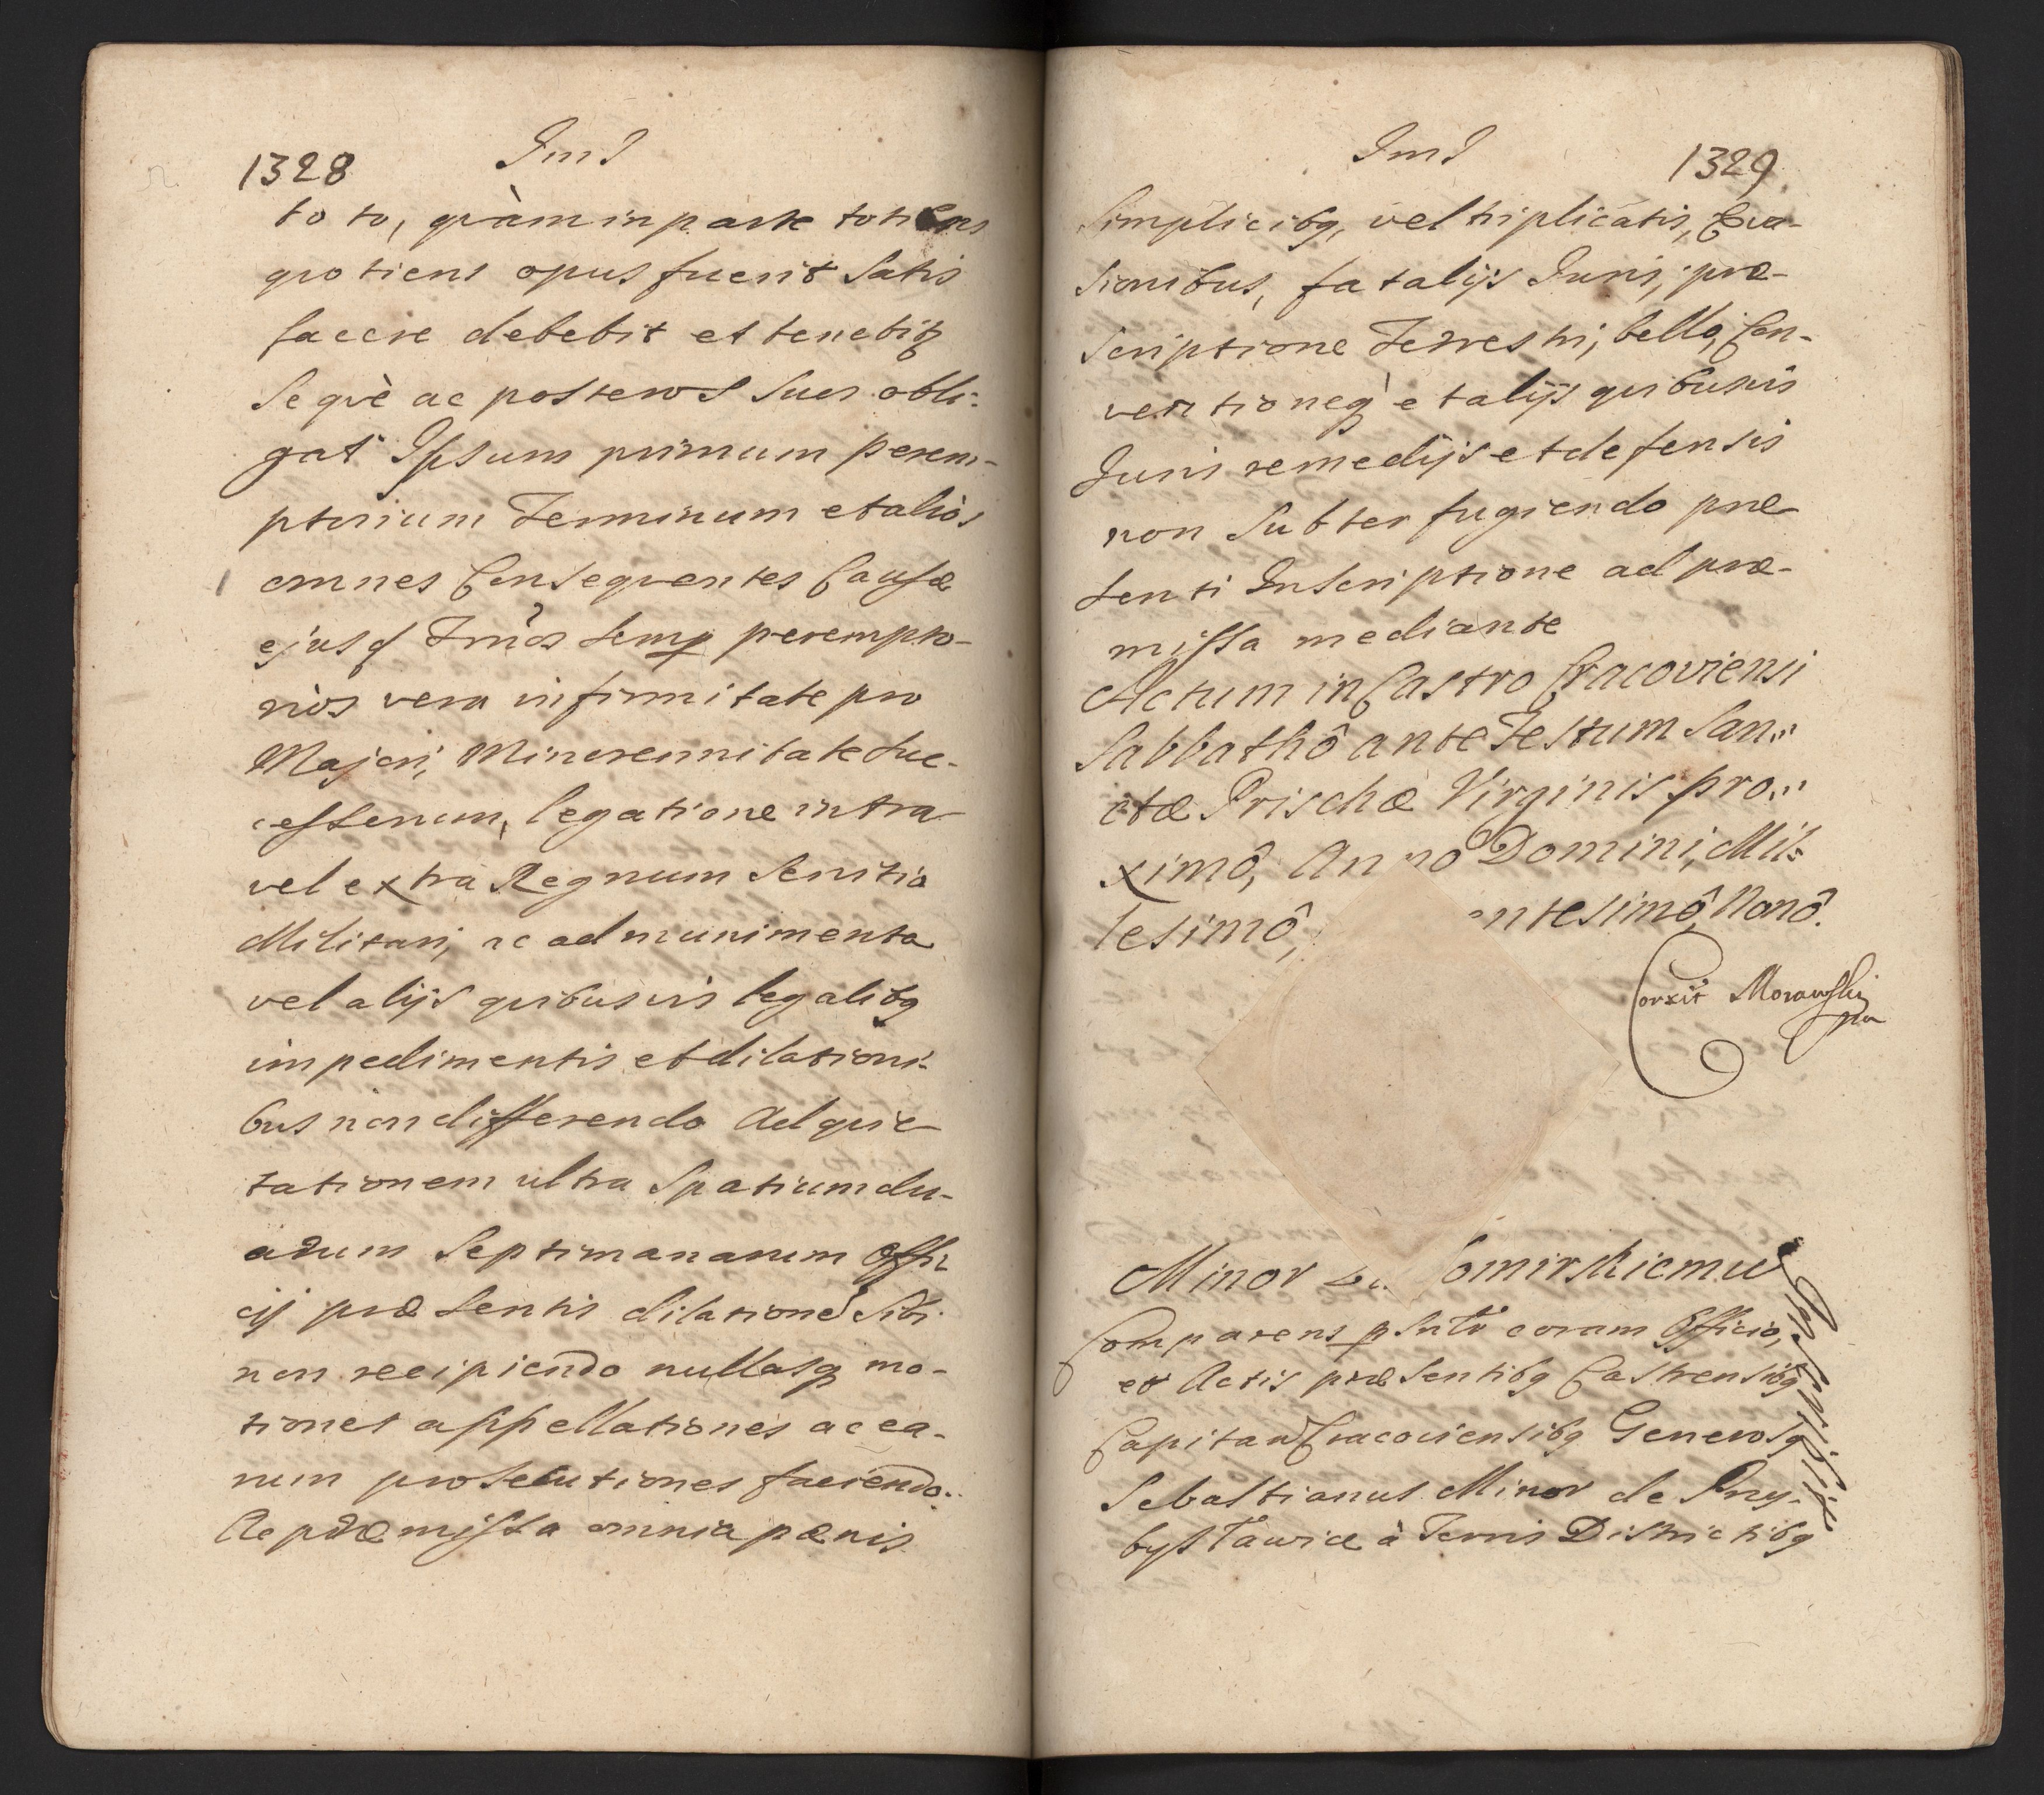 1328
Ind
to to, quàm in parte totiens
quotiens opus fuerit Satis
facere debebit et tenebitq
Se què ac posteros suos obli-
gat Ipsum primum perem-
ptorium Terminum et aliòs
omnes Consequentes Causæ
ejusq Trnòs semp perempto-
riòs vera infirmitate pro
Majori, Minorennitate Suc-
cessorum, legatione intra
vel extra Regnum Servitio
Militari, ac ad munimenta
vel alijs quibusvis legalibq
impedimentis et dilationi-
bus non differendo Ad quie-
tationem ultra Spatium du-
arum Septimanarum Offi-
cij præsentis dilationes Sibi
non recipiendo nullasq mo-
tiones appellationes ac ea-
rum prosecutiones faciendo.
Ac præmissa omnia pænis
Ind
1329
Simplicibq, vel triplicatis, Eva-
sionibus, fatalijs Juris, præ-
scriptione Terrestri, bello, Con-
ventioneq et alijs quibusvis
Juris remedijs et defensis
non Subter fugiendo præ-
senti Inscriptione ad præ-
missa mediante
Actum in Castro Cracoviensi
Sabbathô ante Festum San-
ctæ Prischæ Virginis pro-
ximô, Anno Domini, Mil-
lesimô, ntesimô, Nonô.
Corxit Morawski
mp
Minor omirskiemu
Comparens psntr coram Officio,
et Actis præsentibq Castrensibq
Capitan Cracoviensibq Generosq
Sebastianus Minor de Przy-
bysławice à Terris Districtibq